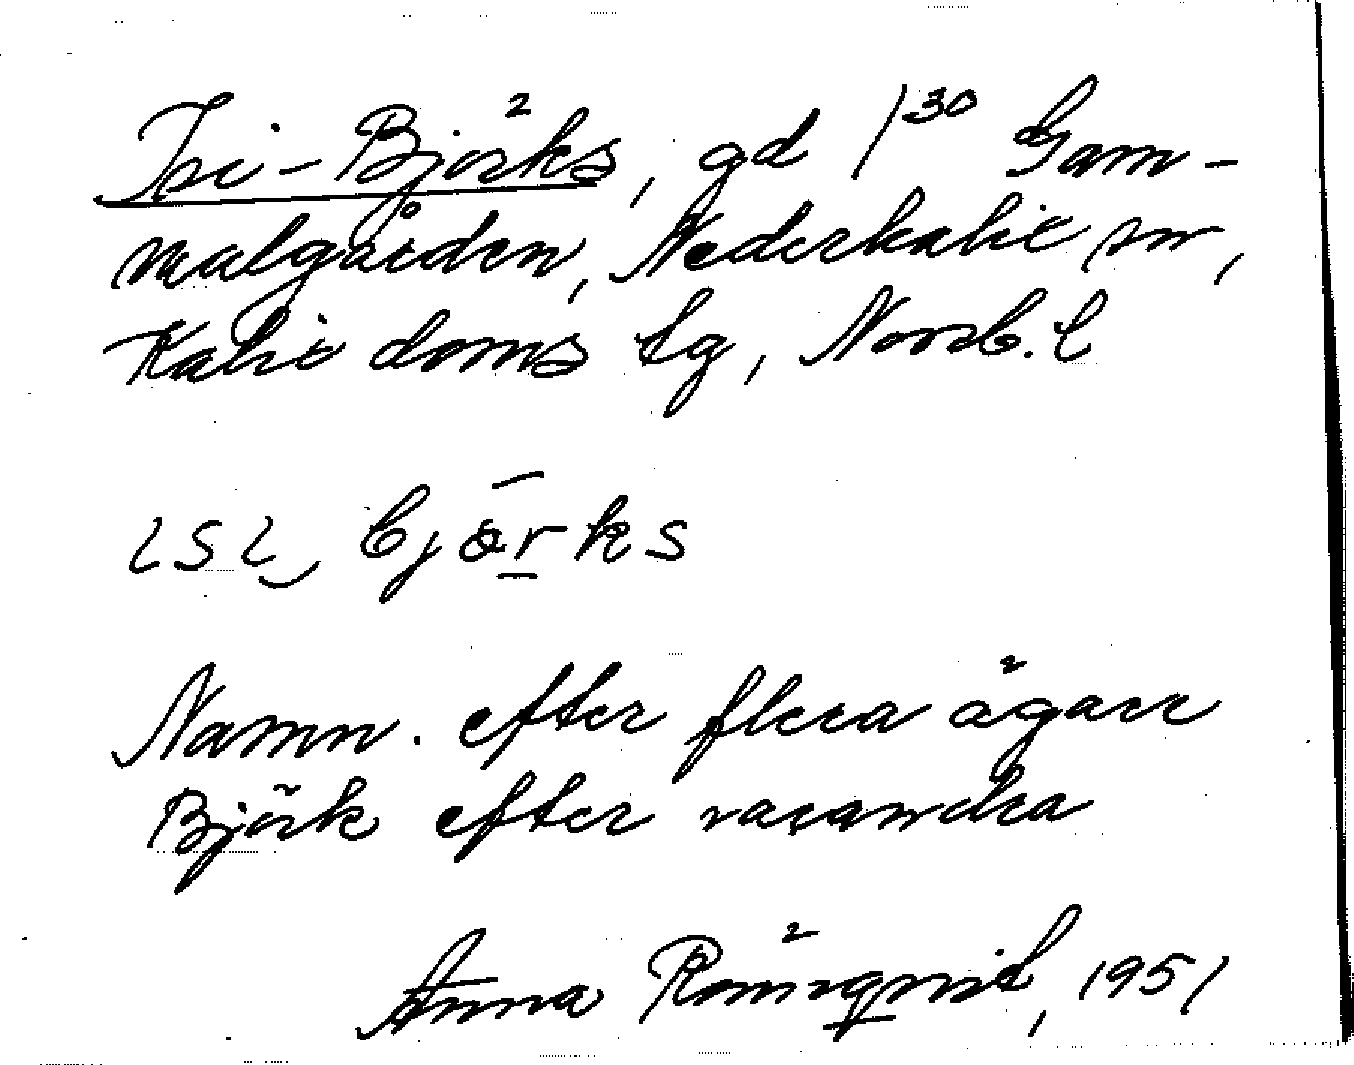 Isi-Björks, gd 1³⁰ Gam-
malgården, Nederkalix sn,
Kalix doms lg, Norrb. l
ɩsɩ‿ björ̲ks
Namn. efter flera ägare
Björk efter varandra
Anna Römqvist, 1951